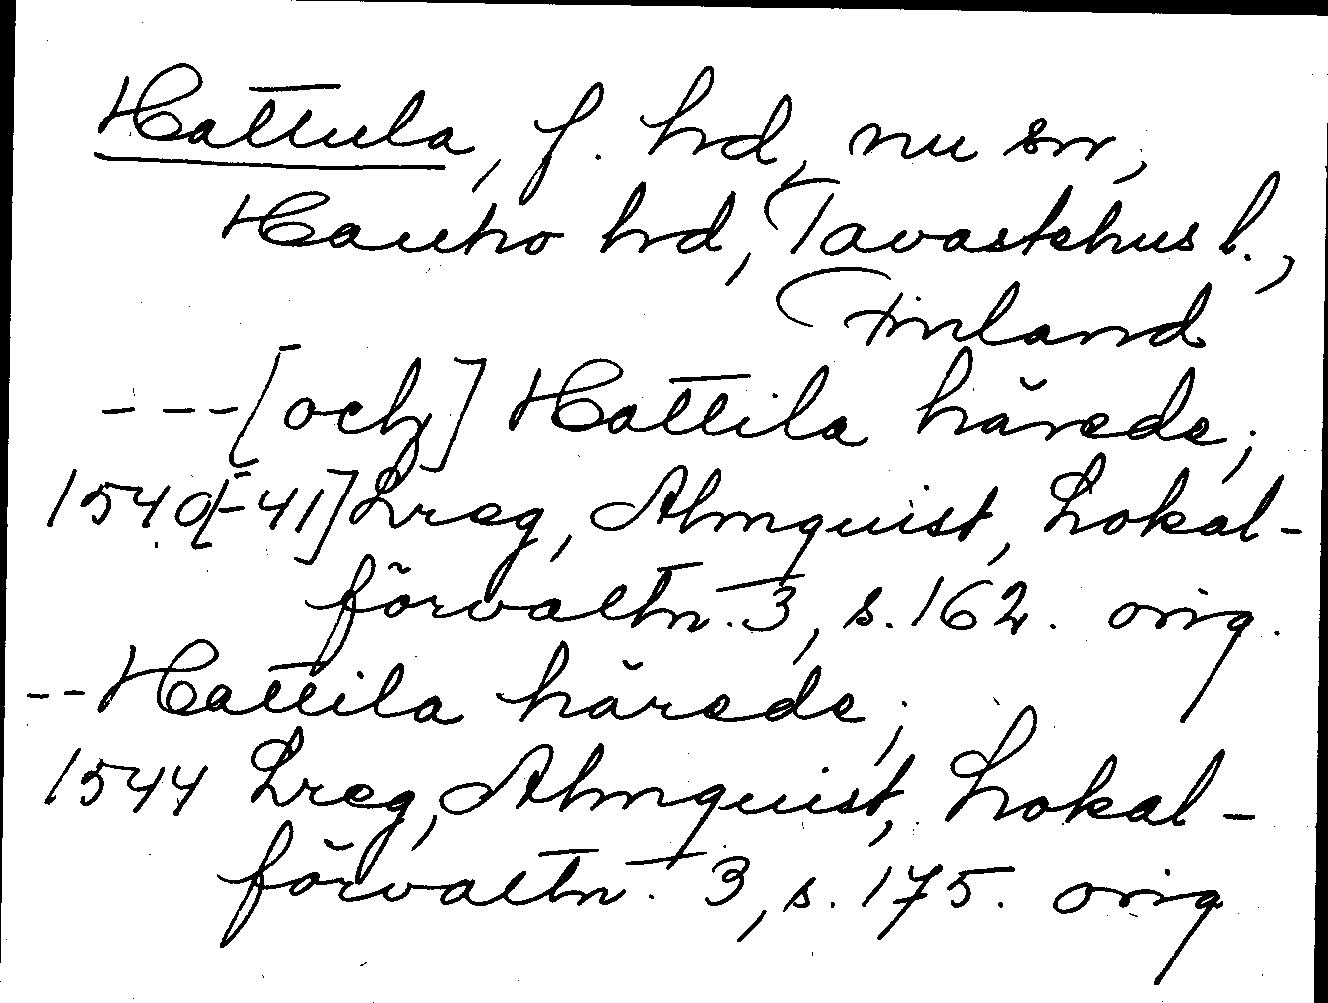 Hattula, f. hd, nu sn,
Hauho hd, Tavastehus l.,
Finland
---[och] Hattila härede;
1540[-41] Lreg, Almquist, Lokal-
förvaltn. 3, s. 162. orig.
-- Hattila härede;
1544 Lreg, Almquist, Lokal-
förvaltn. 3, s. 175. orig